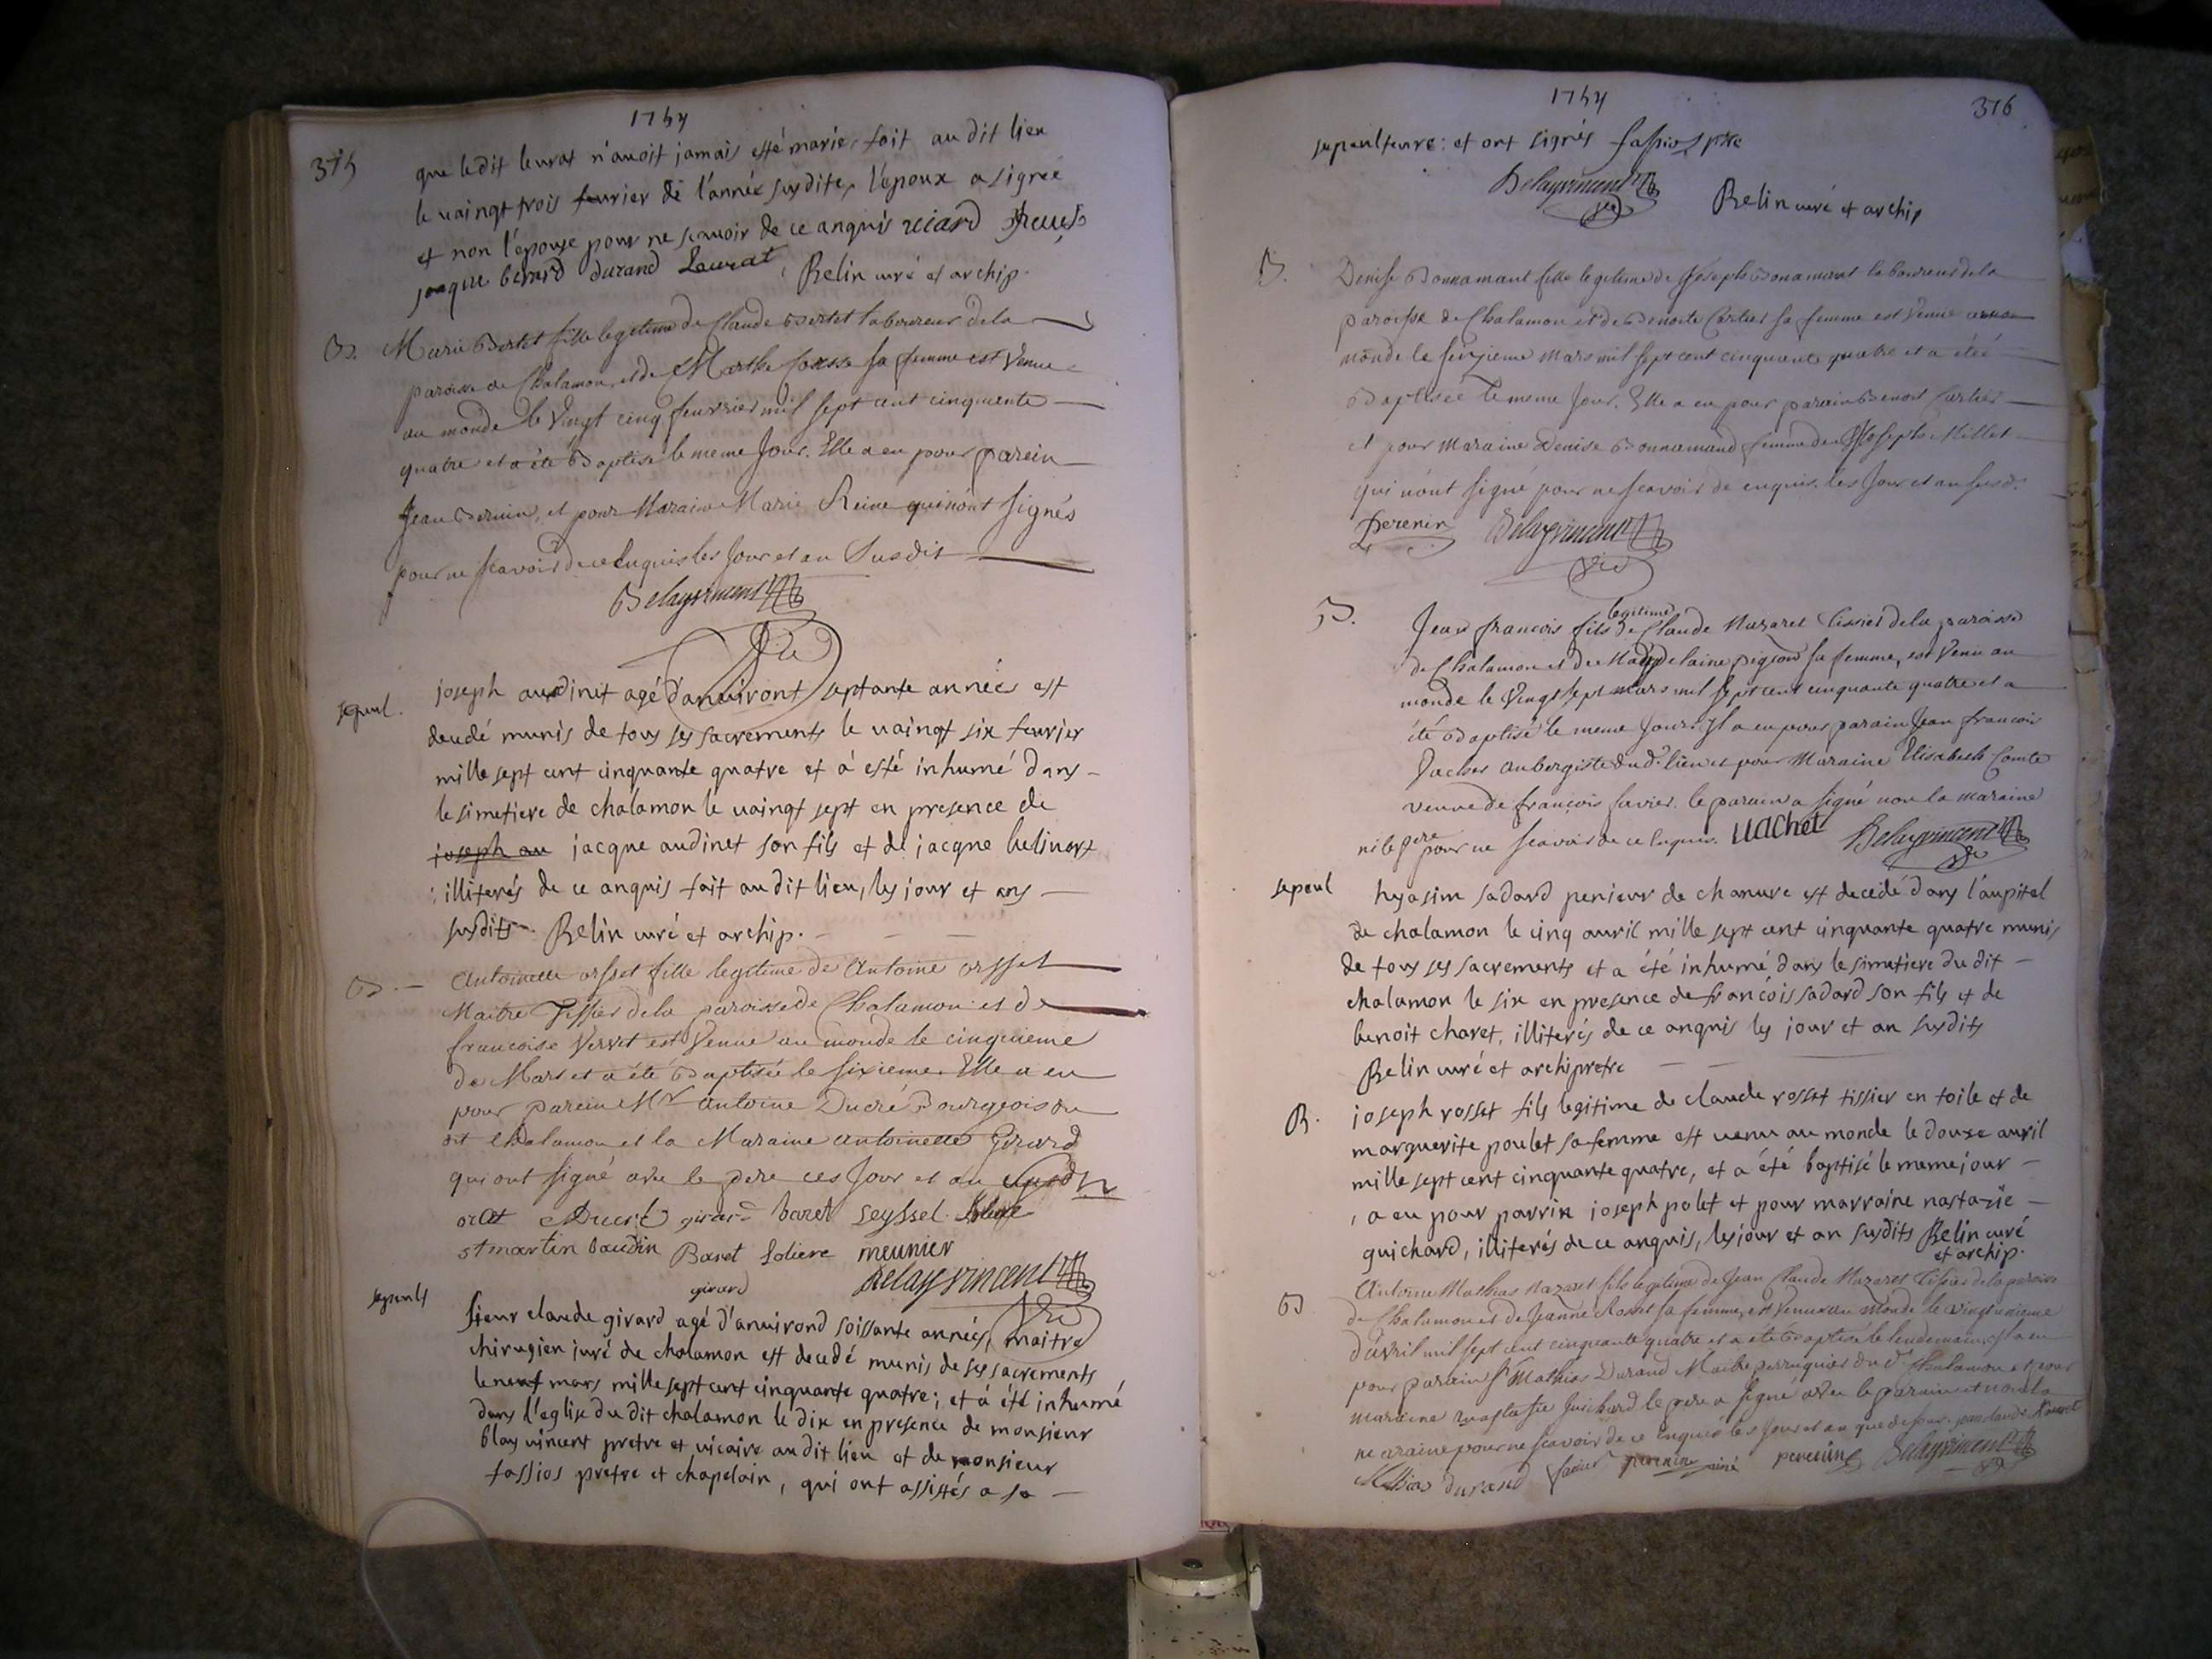 1754
375
que ledit leurat n'auoit jamais esté marié, fait au dit lieu
le uaingt trois feurier de l'année susdite, l'epoux a signéé
et non l'epouse pour ne scauoir de ce anquis
jaque berard durand Leurat, Belin curé et archip.
B. Marie Bertet fille legitime de Claude Bertet laboureur de la
paroisse de Chalamon, et de Marthe sa femme est Venue
au monde le Vingt cinq feuvrier mil sept cent cinquente
quatre et a été Baptisé le meme Jour. Elle a eu pour parein
Jean et pour Maraine Marie Reine qui n'ont signés
pour ne scavoir de ce Enquis les Jour et an Susdit
Delayvincent
Vic
sepul. joseph audinet agé d'anuiront septante années est
decedé munis de tous ses sacrements le uaingt six feurier
mille sept cent cinquante quatre et a esté inhumé dans
le simetiere de chalamon le uaingt sept en presence de
joseph au jacque audinet son fils et de jacque
illiterés de ce anquis fait au dit lieu, les jour et ans
susdits Belin curé et archip.
B. Antoinette orsset fille legitime de Antoine orsset
Maitre Tissier de la paroisse de Chalamon et de
francoise Verret est Venue au monde le cinquieme
de Mars et a été Baptisée le sixieme. Elle a eu
pour parein Mr antoine Ducré Bourgeois du
dit Chalamon et la Maraine antoinette Girard
qui ont signé avec le pere ces Jour et an
orset Ducré girard baret seyssel
st martin baudin Baret Soliere meunier
girard Delayvincent
Vic
sepult sieur claude girard agé d'anuirond soissante années, maitre
chirugien juré de chalamon est decedé munis de ses sacrements
le neuf mars mille sept cent cinquante quatre; et a été inhumé
dans l'eglise du dit chalamon le dix en presence de monsieur
blay vincent pretre et vicaire au dit lieu et de monsieur
fassios pretre et chapelain, qui ont assistés a sa
1754
376
sepeulteure: et ont signés fassios ptre
Delayvincent Vic
Belin curé et archip
B. Denise Bonnamant fille legitime de Joseph Bonamant laboureur de la
paroisse de Chalamon et de Benoite Cartier sa femme est Venue au
monde le seizieme mars mil sept cent cinquante quatre et a étéé
Baptisée le meme Jour. Elle a eu pour parain Benoit Cartier
et pour Maraine Denise Bonnamand femme de Joseph Millet
qui n'ont signé pour ne scavoir de enquis. les Jour et an susd.
Perenin Delayvincent
Vic
B. Jean francois fils legitime de Claude Nazaret Tissier de la paroisse
de Chalamon et de Magdelaine pigeon sa femme, est Venu au
monde le Vingt sept mars mil sept cent cinquante quatre et a
été Baptisé le meme Jour. Il a eu pour parain Jean francois
Vacher aubergiste du d. lieu et pour Maraine Elisabeth Comte
veuve de françois favier. le parain a signé non la maraine
ni le pere pour ne scavoir de ce Enquis. uachet Delayvincent
Vic
sepeul hyasim sadard penieur de chanure est decedé dans l'aupital
de chalamon le cinq auril mille sept cent cinquante quatre munis
de tous ses sacrements et a été inhumé dans le simetiere du dit
chalamon le six en presence de francois sadard son fils et de
benoit charet, illiterés de ce anquis les jour et an susdits
Belin curé et archipretre
B. joseph rosset fils legitime de claude rosset tissier en toile et de
marguerite poulet sa femme est uenu au monde le douse auril
mille sept cent cinquante quatre, et a été baptisé le meme jour
a eu pour parrin joseph polet et pour marraine nastazie
guichard, illiterés de ce anquis, les jour et an susdits Belin curé
et archip.
B Antoine Mathias Nazaret fils legitime de Jean Claude Nazaret Tissier de la paroisse
de Chalamon et de Jeanne Rosset sa femme, est Venu au Monde le vingtunieme
d'avril mil sept cent cinquante quatre et a été Baptisé le lendemain, il a eu
pour parain Sr Mathias Durand Maitre perruquier du d. Chalamon et pour
maraine nastasie Guichard le pere a signé avec le parain et non la
maraine pour ne scavoir de ce Enquis les Jour et an que dessus. jean claude
Mathias durand favier perenin ainé pereuin Delayvincent